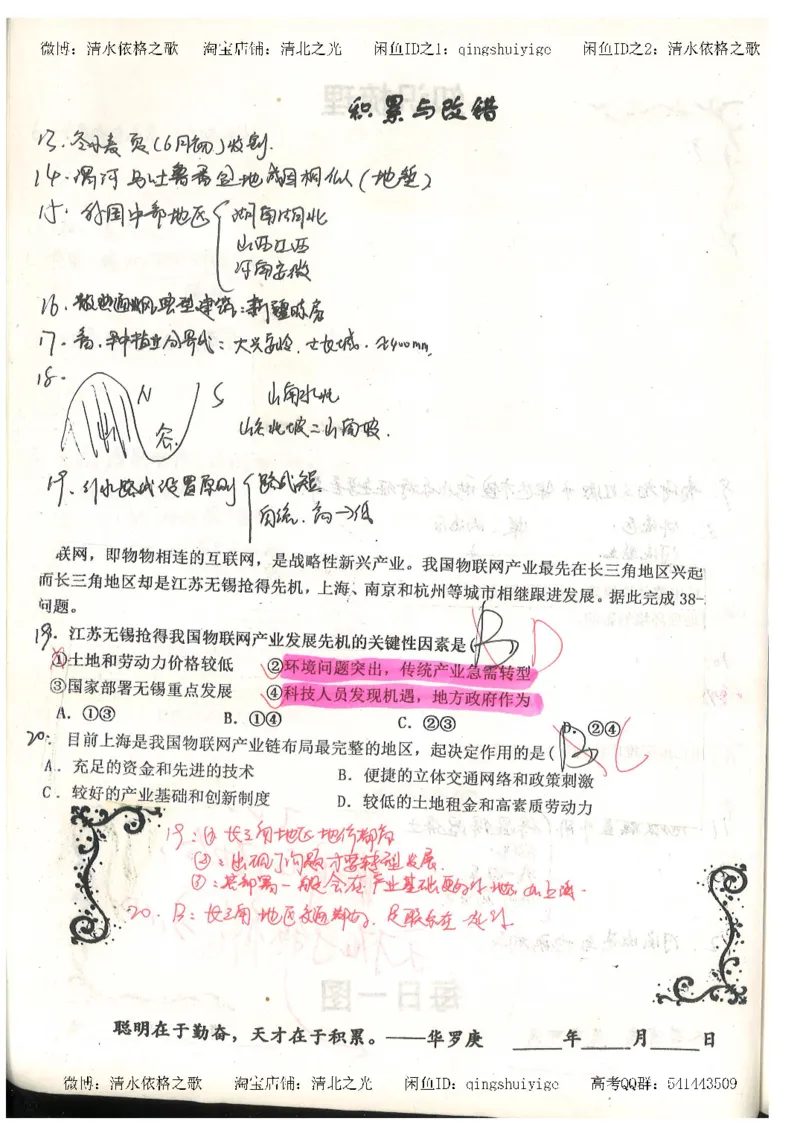 微博：清水依格之歌 淘宝店铺：清北之光 闲鱼ID之1：qingshuiyige 闲鱼ID之2：清水依格之歌
积累与改错
13. 冬小麦 夏(6月初)收割.
14. 渭河与吐鲁番盆地成因相似(地堑)
15. 我国中部地区 湖南湖北
山西江西
河南安徽
16. 散热通风典型建筑：新疆晾房
17. 畜.种植业分界线：大兴安岭.长城.≈400mm
18.
N S 山南水北
谷 山谷北坡=山南坡.
19. 引水路线设置原则 路线短
自流.高→低
联网，即物物相连的互联网，是战略性新兴产业。我国物联网产业最先在长三角地区兴起
而长三角地区却是江苏无锡抢得先机，上海、南京和杭州等城市相继跟进发展。据此完成 38-
问题。
19. 江苏无锡抢得我国物联网产业发展先机的关键性因素是( B ) D
①土地和劳动力价格较低 ②环境问题突出，传统产业急需转型
③国家部署无锡重点发展 ④科技人员发现机遇，地方政府作为
A．①③ B．①④ C．②③ D．②④
20. 目前上海是我国物联网产业链布局最完整的地区，起决定作用的是( B ) C
A．充足的资金和先进的技术 B．便捷的立体交通网络和政策刺激
C．较好的产业基础和创新制度 D．较低的土地租金和高素质劳动力
19：① 长三角地区地价都高
②：出现了问题才要转型发展.
③：其部署一般会在产业基础更好的地方 如上海.
20. B：长三角地区交通都好,
聪明在于勤奋，天才在于积累。——华罗庚 年 月 日
微博：清水依格之歌 淘宝店铺：清北之光 闲鱼ID：qingshuiyige 高考QQ群：541443509